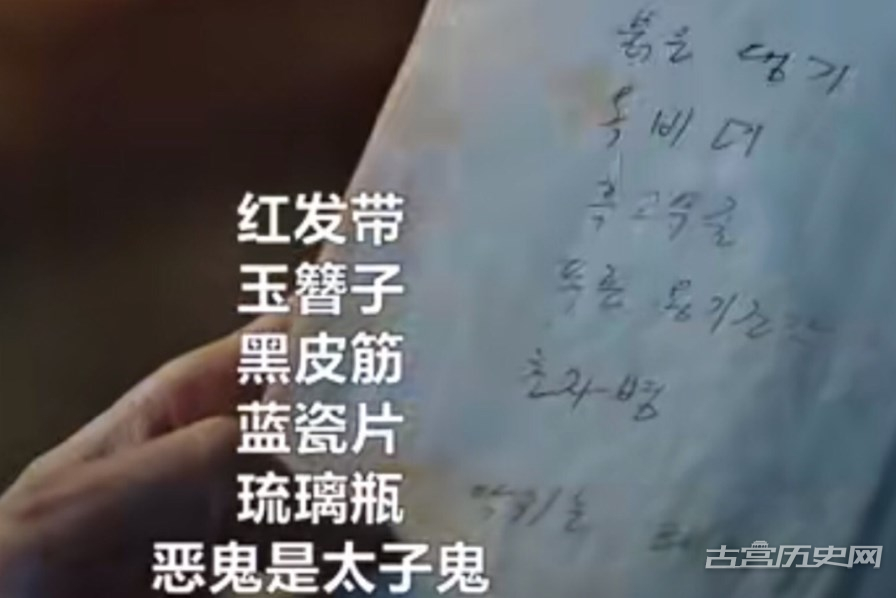 붉은 댕기
옥비녀
흑고무줄
푸른 옹기조각
초자병
악귀는
红发带
玉簪子
黑皮筋
蓝瓷片
琉璃瓶
恶鬼是太子鬼
古宫历史网